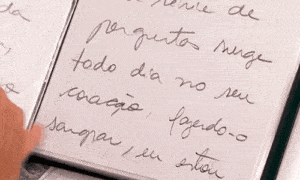 série de
perguntas surge
todo dia no seu
coração, fazendo-o
sangrar, eu estou